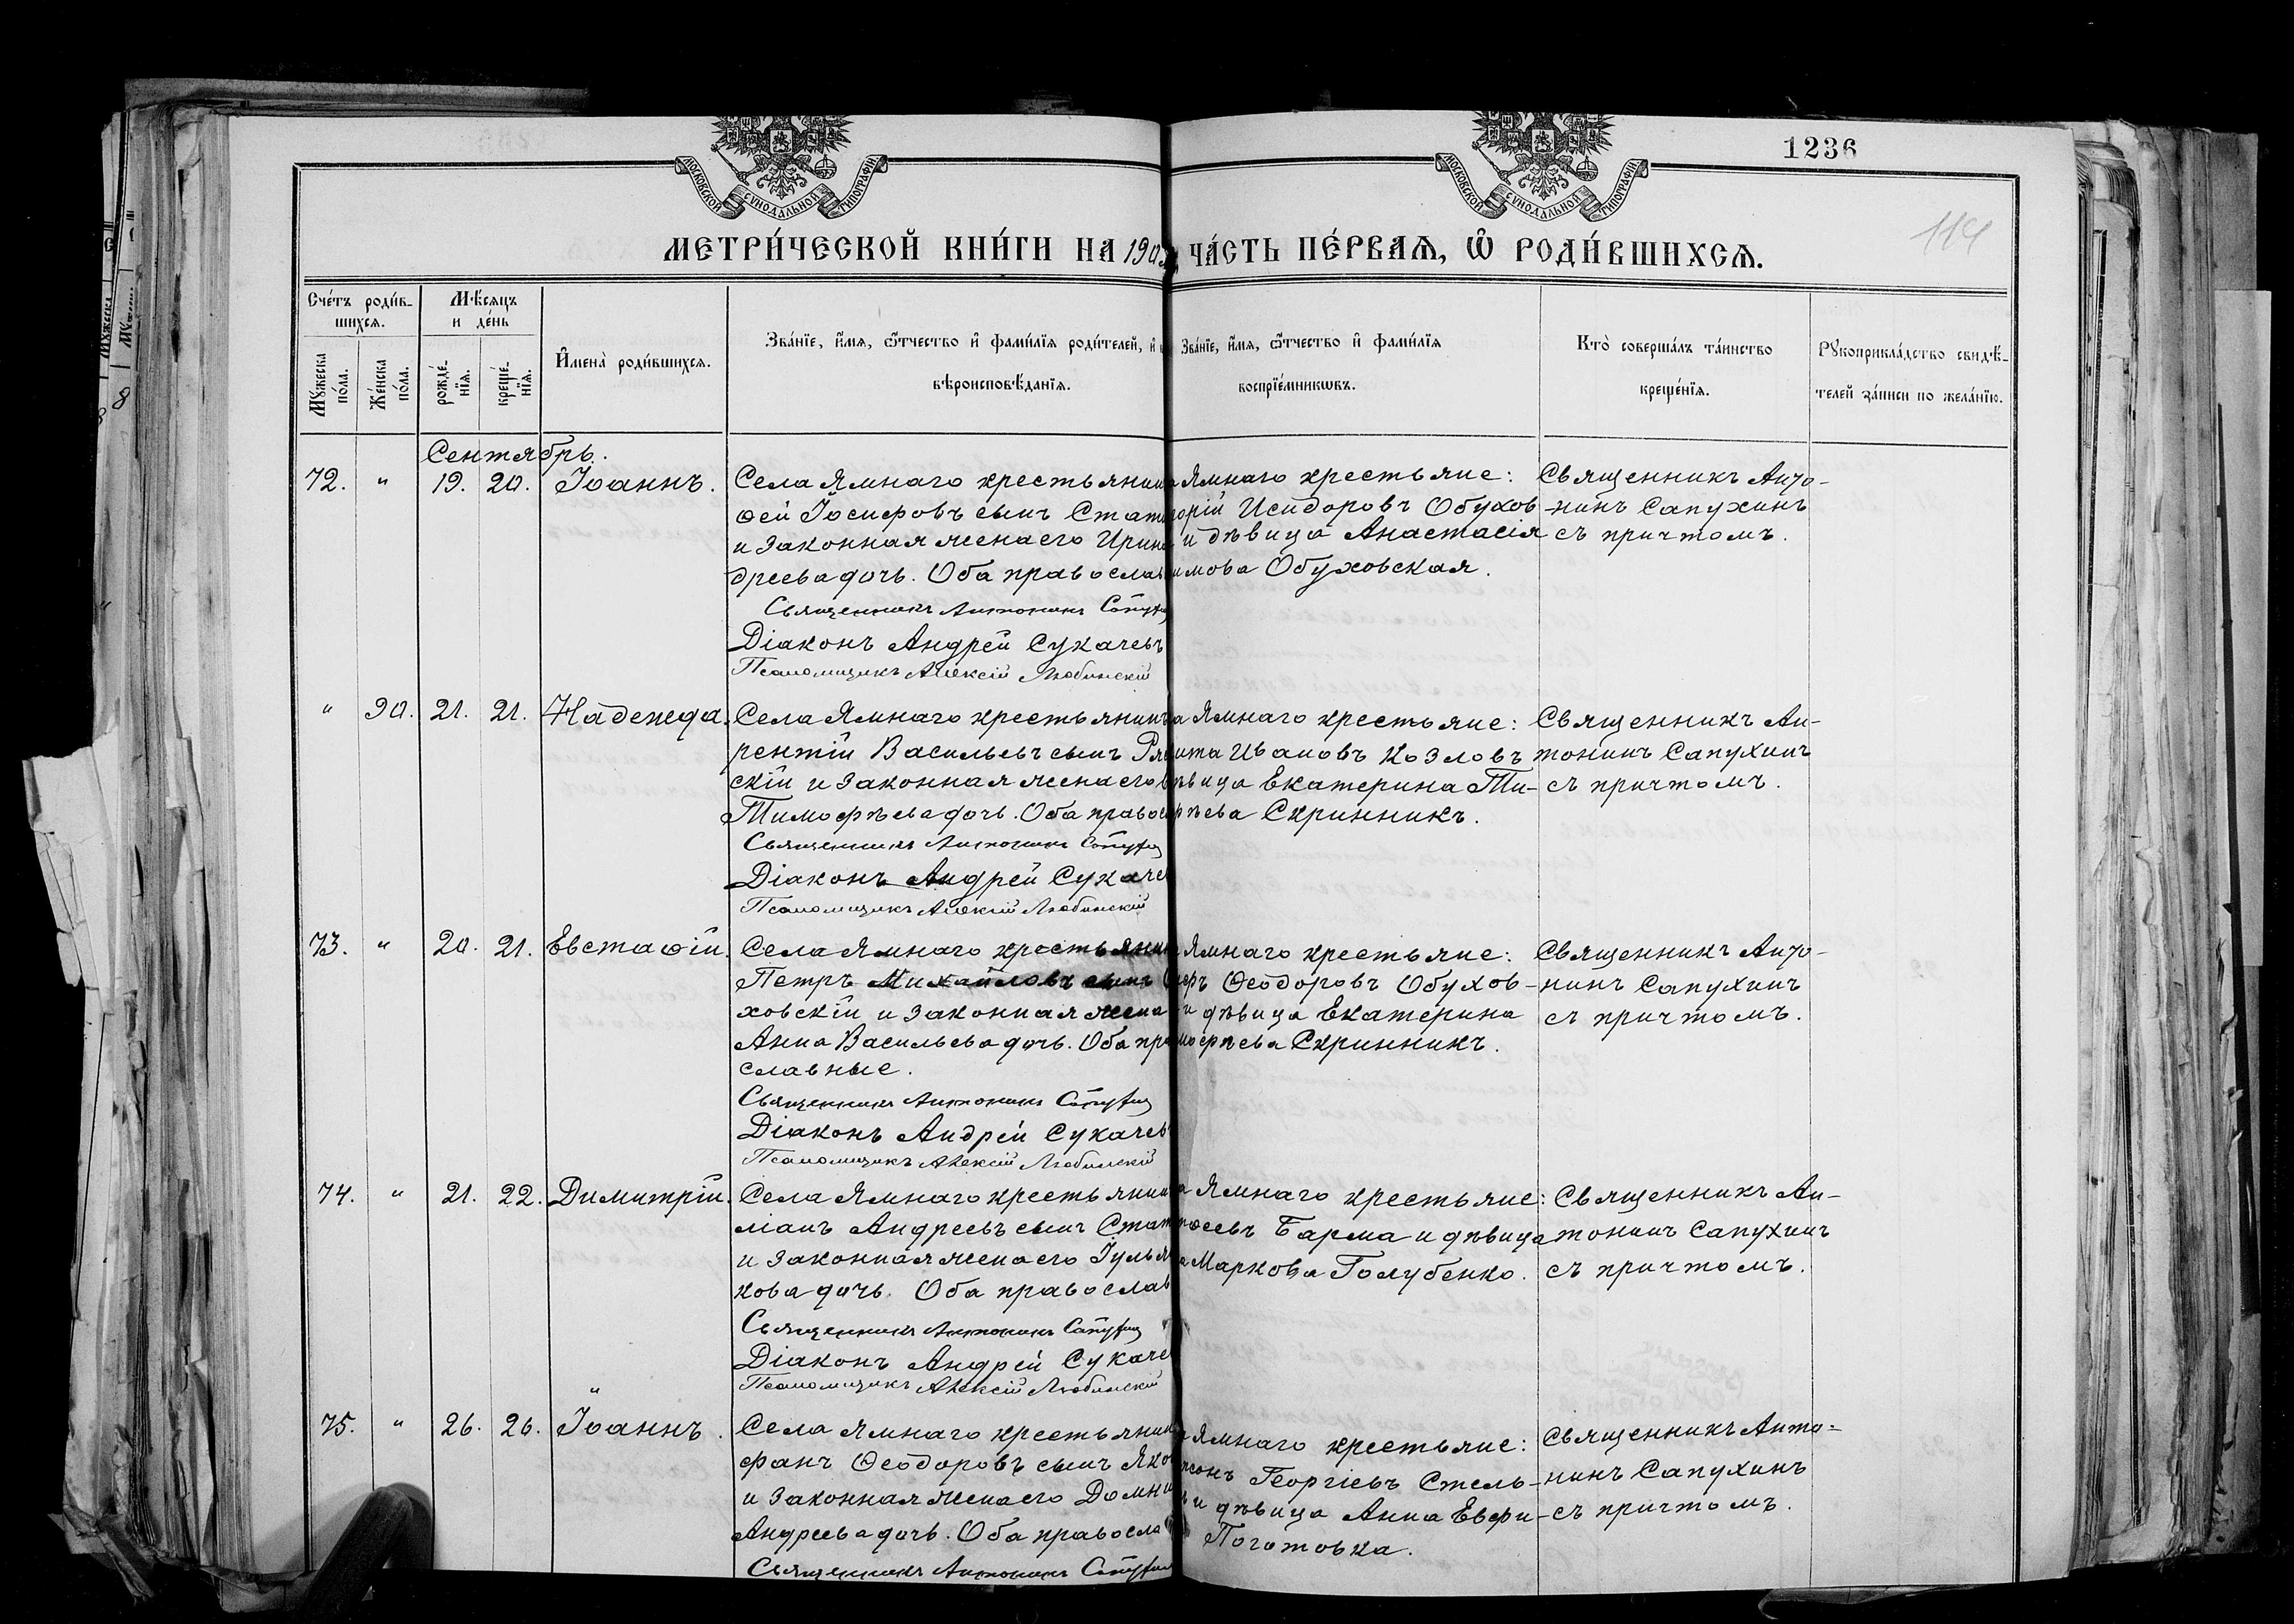 1236
114
МОСКОВСКОЙ СѴНОДАЛЬНОЙ ТИПОГРАФІИ
МОСКОВСКОЙ СѴНОДАЛЬНОЙ ТИПОГРАФІИ
МЕТРИ́ЧЕСКОЙ КНИ́ГИ НА 190
ЧА́СТЬ ПЕ́РВАѦ, Ѽ РОДИ́ВШИХСѦ.
Сче́тъ роди́в-
шихсѧ.
Мѣ́сяцъ
и де́нь
Мꙋжеска по́ла.
Же́нска по́ла.
рожде́-
нїѧ.
креще́-
нїѧ.
И҆мена̀ роди́вшихсѧ.
Зва́нїе, и҆́мѧ, ѻ҆́тчество и҆ фами́лїѧ роди́телей, и҆
вѣроисповѣ́данїѧ.
Зва́нїе, и҆́мѧ, ѻ҆́тчество и҆ фами́лїѧ
воспрїе́мникѡвъ.
Кто̀ соверша́лъ та́инство
креще́нїѧ.
Рꙋкоприкла́дство свидѣ́-
телей за́писи по жела́нїю.
Сентябрь.
72. " 19. 20. Іоаннъ.
Села Ямнаго крестьянин
ѳей Іосифовъ сынъ Стат
и законная жена его Ирина
дреева дочь. Оба православ
Священникъ Антонинъ Сапух
Діаконъ Андрей Сукачевъ
Псаломщикъ Алексій Любинскій
Ямнаго крестьяне:
горій Исидоровъ Обухов-
и дѣвица Анастасія
имова Обуховская.
Священникъ Анто-
нинъ Сапухинъ
съ причтомъ.
" 90. 21. 21. Надежда.
Села Ямнаго крестьянинъ
рентій Васильевъ сынъ Ря
скій и законная жена его
Тимофѣева дочь. Оба правос
Священникъ Антонинъ Сапухин
Діаконъ Андрей Сукаче
Псаломщикъ Алексій Любинскій
а Ямнаго крестьяне:
ита Ивановъ Козловъ
ѣвица Екатерина Ти-
ѣева Скринникъ.
Священникъ Ан-
тонинъ Сапухинъ
съ причтомъ.
73. " 20. 21. Евстаѳій.
Села Ямнаго крестьянин
Петръ Михайловъ сынъ О
ховскій и законная жена
Анна Васильева дочь. Оба пра
славные.
Священникъ Антонинъ Сапухин
Діаконъ Андрей Сукачев
Псаломщикъ Алексій Любинскій
Ямнаго крестьяне:
Ѳеодоровъ Обухов-
и дѣвица Екатерина
мофѣева Скринникъ.
Священникъ Анто-
нинъ Сапухинъ
съ причтомъ.
74. " 21. 22. Димитрій.
Села Ямнаго крестьянин
ліанъ Андреевъ сынъ Стат
и законная жена его Іулья
кова дочь. Оба православ
Священникъ Антонинъ Сапухин
Діаконъ Андрей Сукаче
Псаломщикъ Алексій Любинскій
а Ямнаго крестьяне:
Барма и дѣвица
а Маркова Голубенко.
Священникъ Ан-
тонинъ Сапухинъ
съ причтомъ.
75. " 26. 26. Іоаннъ.
Села Ямнаго крестьянин
фанъ Ѳеодоровъ сынъ Яко
и законная жена его Домни
Андреева дочь. Оба правосла
Священникъ Антонинъ Сапухин
Ямнаго крестьяне:
Георгіевъ Стель-
и дѣвица Анна Евфи-
Поготовка.
Священникъ Анто-
нинъ Сапухинъ
съ причтомъ.